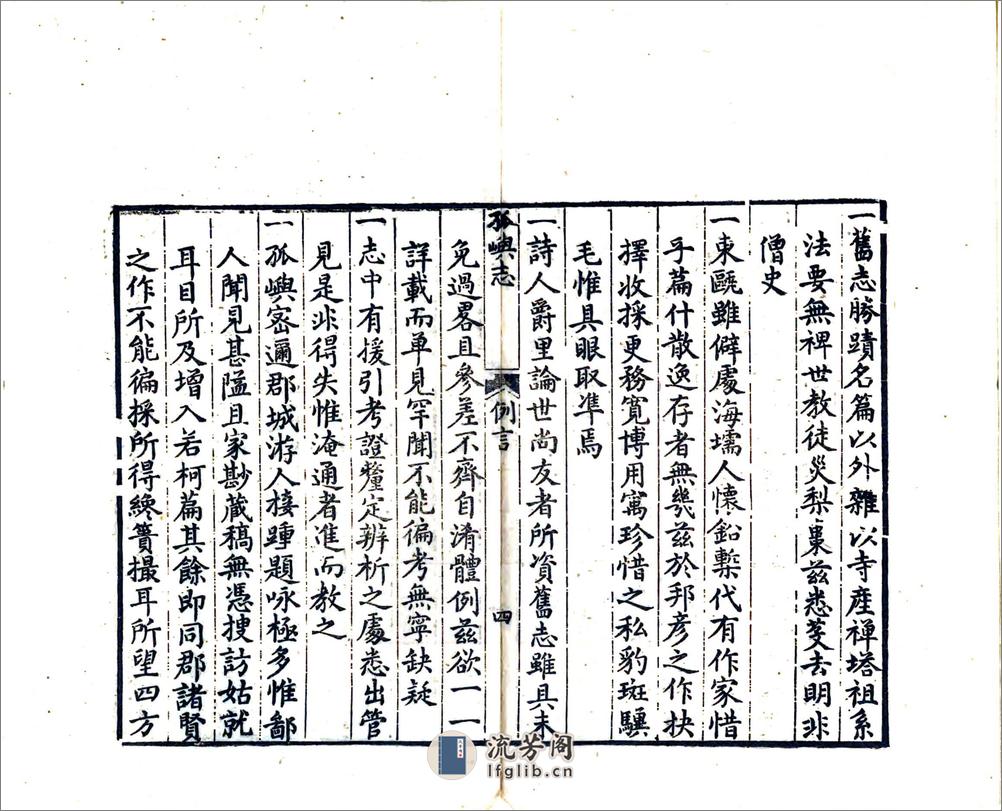 一舊志勝蹟名篇以外雜以寺產禅塔祖系
法要無裨世教徒災梨棗茲悉芟去明非
僧史
一東甌雖僻處海壖人懷鉛槧代有作家惜
乎篇什散逸存者無幾茲於邦彥之作抉
擇收採更務寬博用寓珍惜之私豹斑驥
毛惟具眼取準焉
一詩人爵里論世尚友者所資舊志雖具未
孤嶼志
例言
四
免過畧且參差不齊自淆體例茲欲一一
詳載而單見罕聞不能徧考無寧缺疑
一志中有援引考證釐定辨析之處悉出管
見是非得失惟淹通者進而教之
一孤嶼密邇郡城游人接踵題咏極多惟鄙
人聞見甚隘且家尠藏稿無憑搜訪姑就
耳目所及增入若柯篇其餘即同郡諸賢
之作不能徧採所得纔簣撮耳所望四方
流芳阁
lfglib.cn